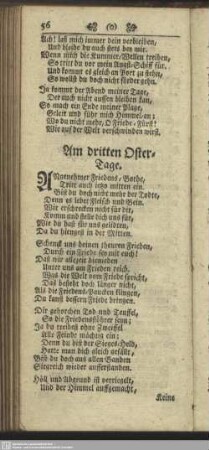 56
Ach! laß mich immer dein verbleiben,
Und bleibe du auch stets bey mir.
Wenn mich die Kummer-Wellen treiben,
So tritt du vor mein Angst-Schiff für.
Und kommt es gleich an Port zu stehn,
So wollst du doch nicht fürder gehn.
Ja kommt der Abend meiner Tage,
Der auch nicht aussen bleiben kan,
So mach ein Ende meiner Plage,
Geleit und führ mich Himmel-an;
Wo du nicht mehr, O Friede-Fürst!
Wie auf der Welt verschwinden wirst.
Am dritten Oster-
Tage.
Angenehmer Friedens-Bothe,
Tritt auch itzo mitten ein.
Bist du doch nicht mehr der Todte,
Denn du lebest Fleisch und Bein.
Wir erschrecken nicht für dir,
Komm und stelle dich uns für,
Wie du hast für uns gelidten,
Da du hiengest in der Mitten.
Schenck uns deinen theuren Frieden,
Durch ein Friede sey mit euch!
Das wir allezeit hienieden
Unter uns am Frieden reich.
Was die Welt vom Friede spricht,
Das besteht doch länger nicht,
Als die Friedens-Paucken klingen,
Du kanst bessern Friede bringen.
Dir gehorchen Tod und Teuffel,
So die Friedensstöhrer seyn;
Ja du treibest ohne Zweiffel
Alle Feinde mächtig ein;
Denn du bist der Sieges-Held,
Hatte man dich gleich gefällt,
Bist du doch aus allen Banden
Siegreich wieder aufferstanden.
Höll und Abgrund ist verriegelt,
Und der Himmel auffgemacht,
Keins